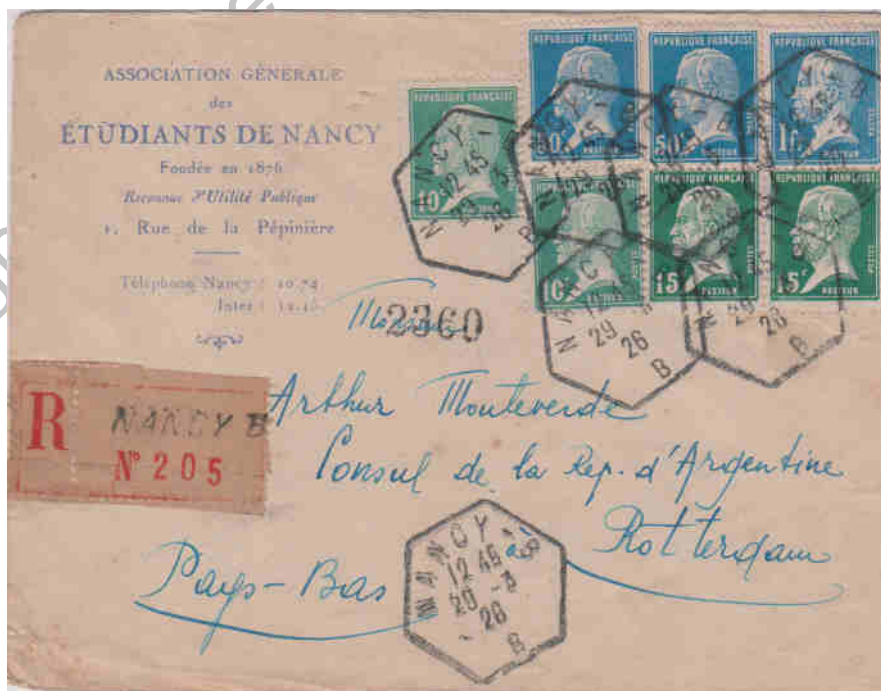 ASSOCIATION GÉNÉRALE
des
ÉTUDIANTS DE NANCY
Fondée en 1876
Reconnue d'Utilité Publique
1, Rue de la Pépinière
Téléphone Nancy : 10.74
Inter :
REPUBLIQUE FRANÇAISE
10c
REPUBLIQUE FRANÇAISE
50c
REPUBLIQUE FRANÇAISE
50c
REPUBLIQUE FRANÇAISE
1F
REPUBLIQUE FRANÇAISE
10c
REPUBLIQUE FRANÇAISE
15c
PASTEUR
POSTES
REPUBLIQUE FRANÇAISE
15c
PASTEUR
POSTES
NANCY
12 45
26
B
NANCY
12 45
29
26
B
2360
Monsieur
Arthur Monteverde
Consul de la Rep. d'Argentine
à Rotterdam
Pays-Bas
R
NANCY B
N° 205
NANCY
12 45
B